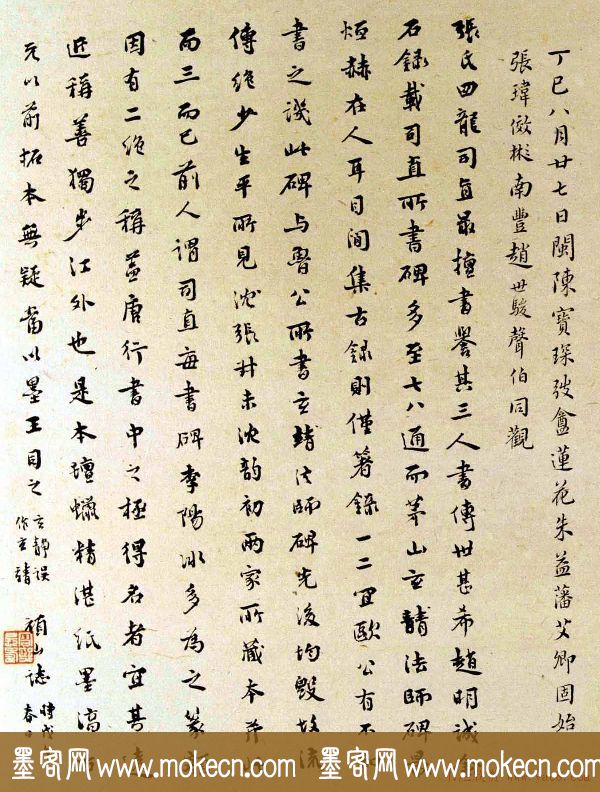 丁巳八月廿七日閩陳寶琛弢盦蓮花朱益藩艾卿固始
張瑋傚彬南豐趙世駿聲伯同觀
張氏四龍司直最擅書譽其三人書傳世甚希趙明誠金
石錄載司直所書碑多至七八通而茅山玄靖法師碑最
烜赫在人耳目間集古錄則僅箸錄一二宜歐公有不
書之譏此碑與魯公所書玄靖法師碑先後均毀故流
傳絕少生平所見沈張尗未沈韵初兩家所藏本并此
而三而已前人謂司直每書碑李陽冰多為之篆額
因有二絕之稱蓋唐行書中之極得名者宜其遠
近稱善獨步江外也是本壇蠟精湛紙墨
元以前拓本無疑當以墨王目之
玄靜誤作玄靖
頌山誌
春日
墨客网 www.mokecn.com 墨客网 www.mokecn.com